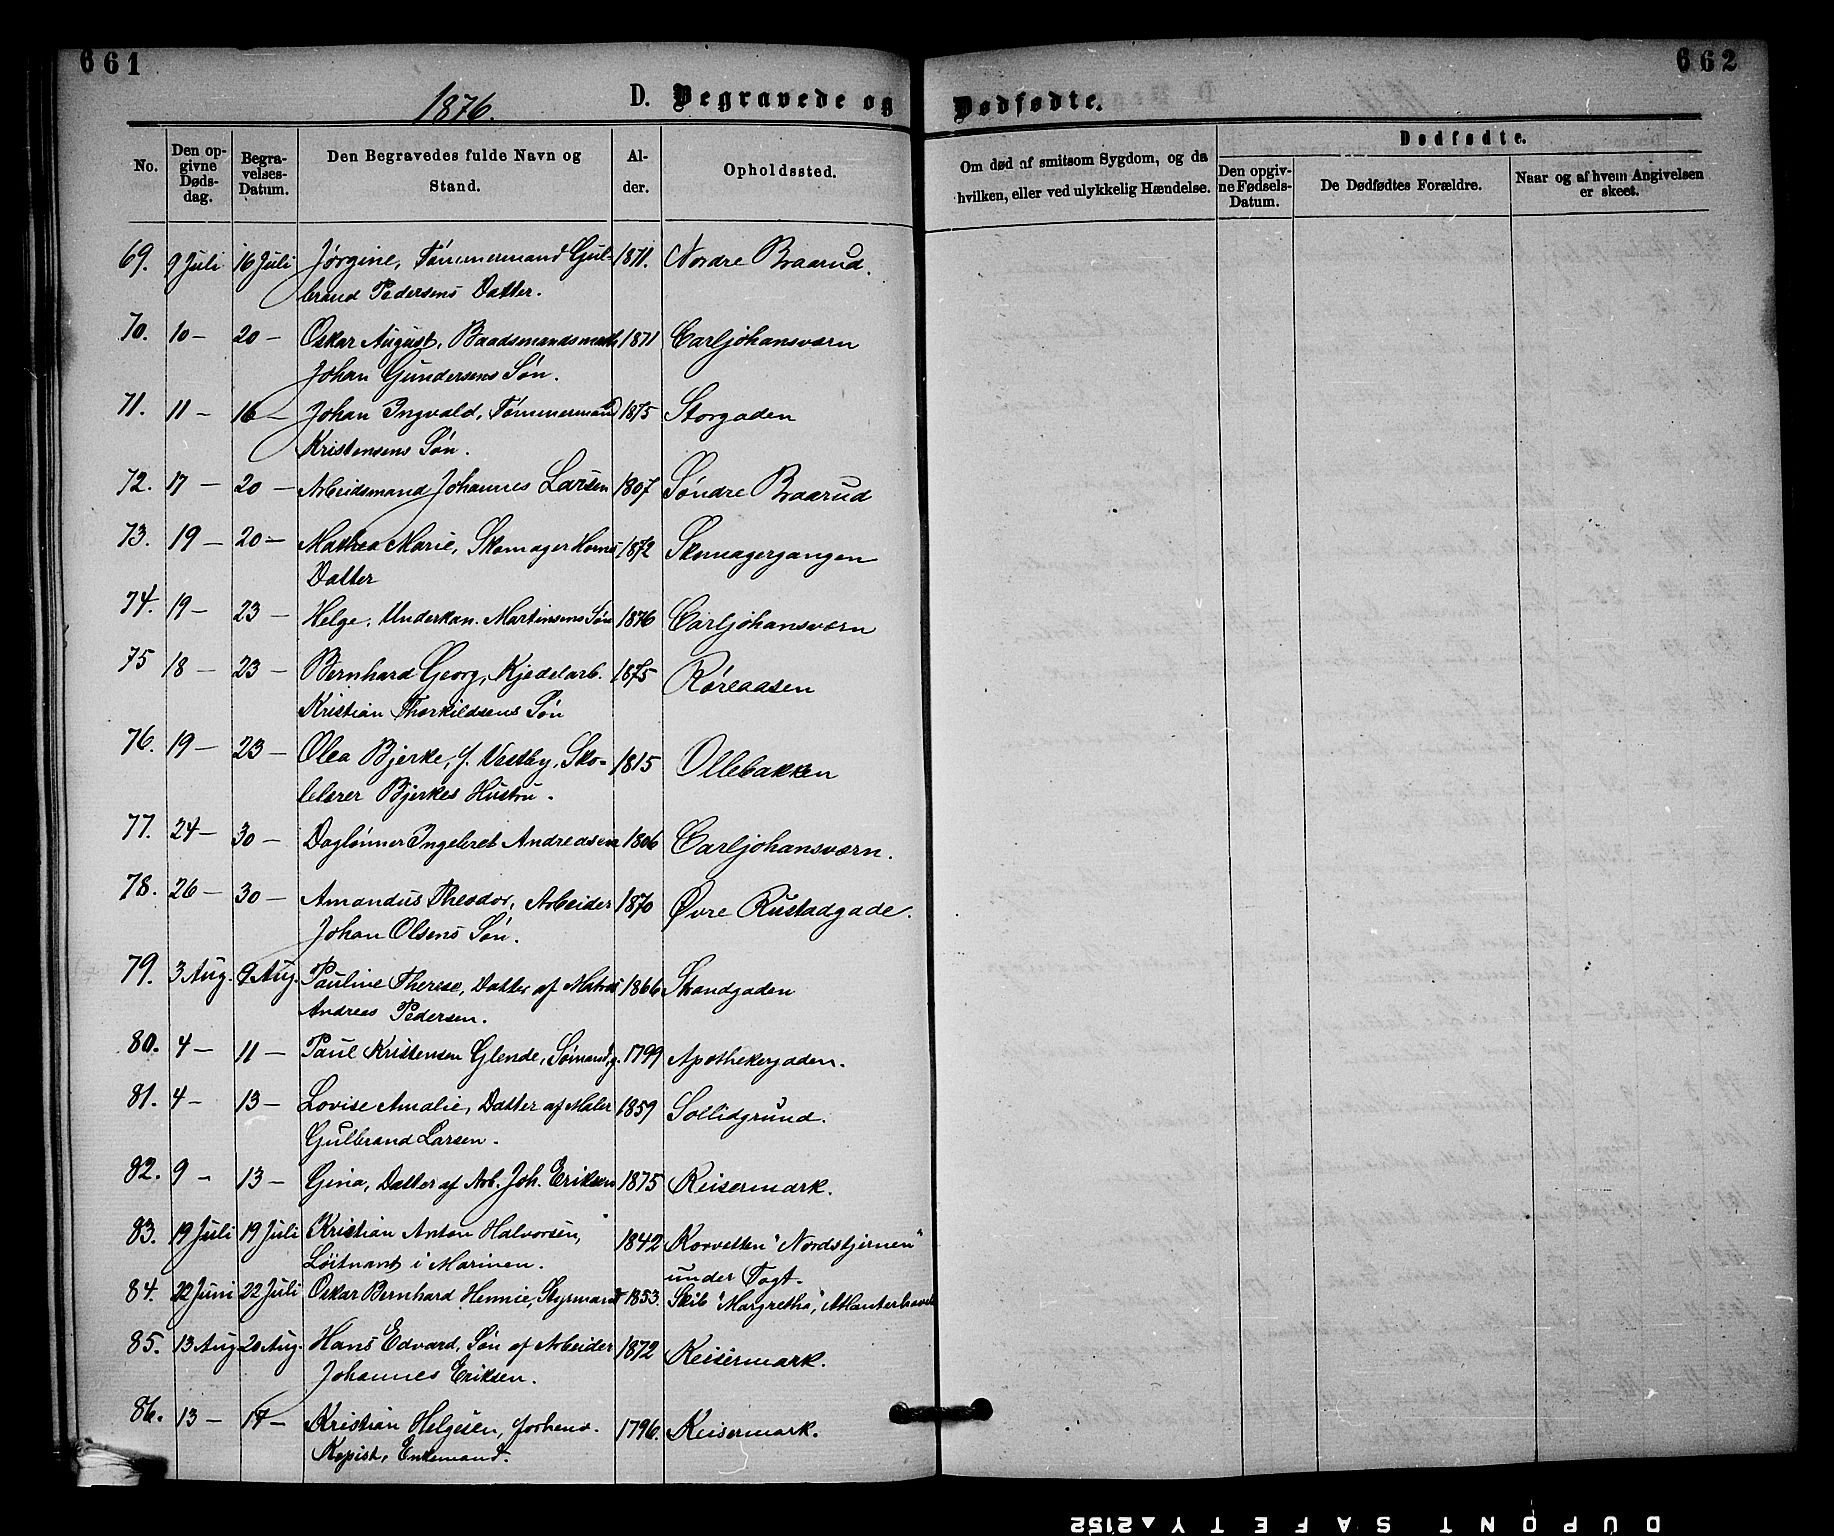 661
662
1876.
D. Begravede og Dødfødte.
No.
Den opgivne Dødsdag.
Begravelses-Datum.
Den Begravedes fulde Navn og Stand.
Alder.
Opholdssted.
Om død af smitsom Sygdom, og da hvilken, eller ved ulykkelig Hændelse.
Dødfødte.
Den opgivne Fødsels-Datum.
De Dødfødtes Forældre.
Naar og af hvem Angivelsen er skeet.
69. 9 Juli 16 Juli Jørgine, Tømmermand Gul- 1871. Nordre Braarud.
brand Pedersens Datter.
70. 10 — 20 — Oskar August, Baadsmandsmath 1871 Carljohansværn
Johan Gundersens Søn.
71. 11 — 16 — Johan Ingvald, Tømmermand 1875 Storgaden
Kristensens Søn.
72. 17 — 20 — Arbeidsmand Johannes Larsen 1807 Søndre Braarud
73. 19 — 20 — Mathea Marie, Skomager Horns 1872 Skomagergangen
Datter
74. 19 — 23 — Helge, Underkan. Martinsens Søn 1876 Carljohansværn
75 18 — 23 — Bernhard Georg, Kjedelarb. 1875 Røreaasen
Kristian Thorkildsens Søn
76. 19 — 23 — Olea Bjerke, f. Vestby, Sko- 1815 Ollebakken
lelærer Bjerkes Hustru.
77. 24 — 30 — Daglønner Ingebret Andreasen 1806 Carljohansværn.
78. 26 — 30 — Amandus Theodor, Arbeider 1870 Øvre Rustadgade.
Johan Olsens Søn.
79. 3 Aug. 9 Aug. Pauline Therese, Datter af Matros 1866 Strandgaden
Andreas Pedersen.
80. 4 — 11 — Paul Kristensen Glende, Sømand, g. 1799 Apothekergaden.
81. 4 — 13 — Lovise Amalie, Datter af Maler 1859 Sollidgrund.
Gulbrand Larsen.
82. 9 - 13 — Gina, Datter af Arb. Joh. Eriksen 1875 Keisermark.
83. 19 Juli 19 Juli Kristian Anton Halvorsen, 1842 Korvetten "Nordstjernen"
Løitnant i Marinen. under Togt.
84. 22 Juni 22 Juli Oskar Bernhard Hennie, Styrmand 1853. Skib "Margretha", Atlanterhavet
85. 13 Aug 20 Aug. Hans Edvard, Søn af Arbeider 1872 Keisermark.
Johannes Eriksen.
86. 13 — 17 — Kristian Helgesen, forhenv. 1796. Keisermark.
Kopist, Enkemand.
DUPONT SAFETY 2152